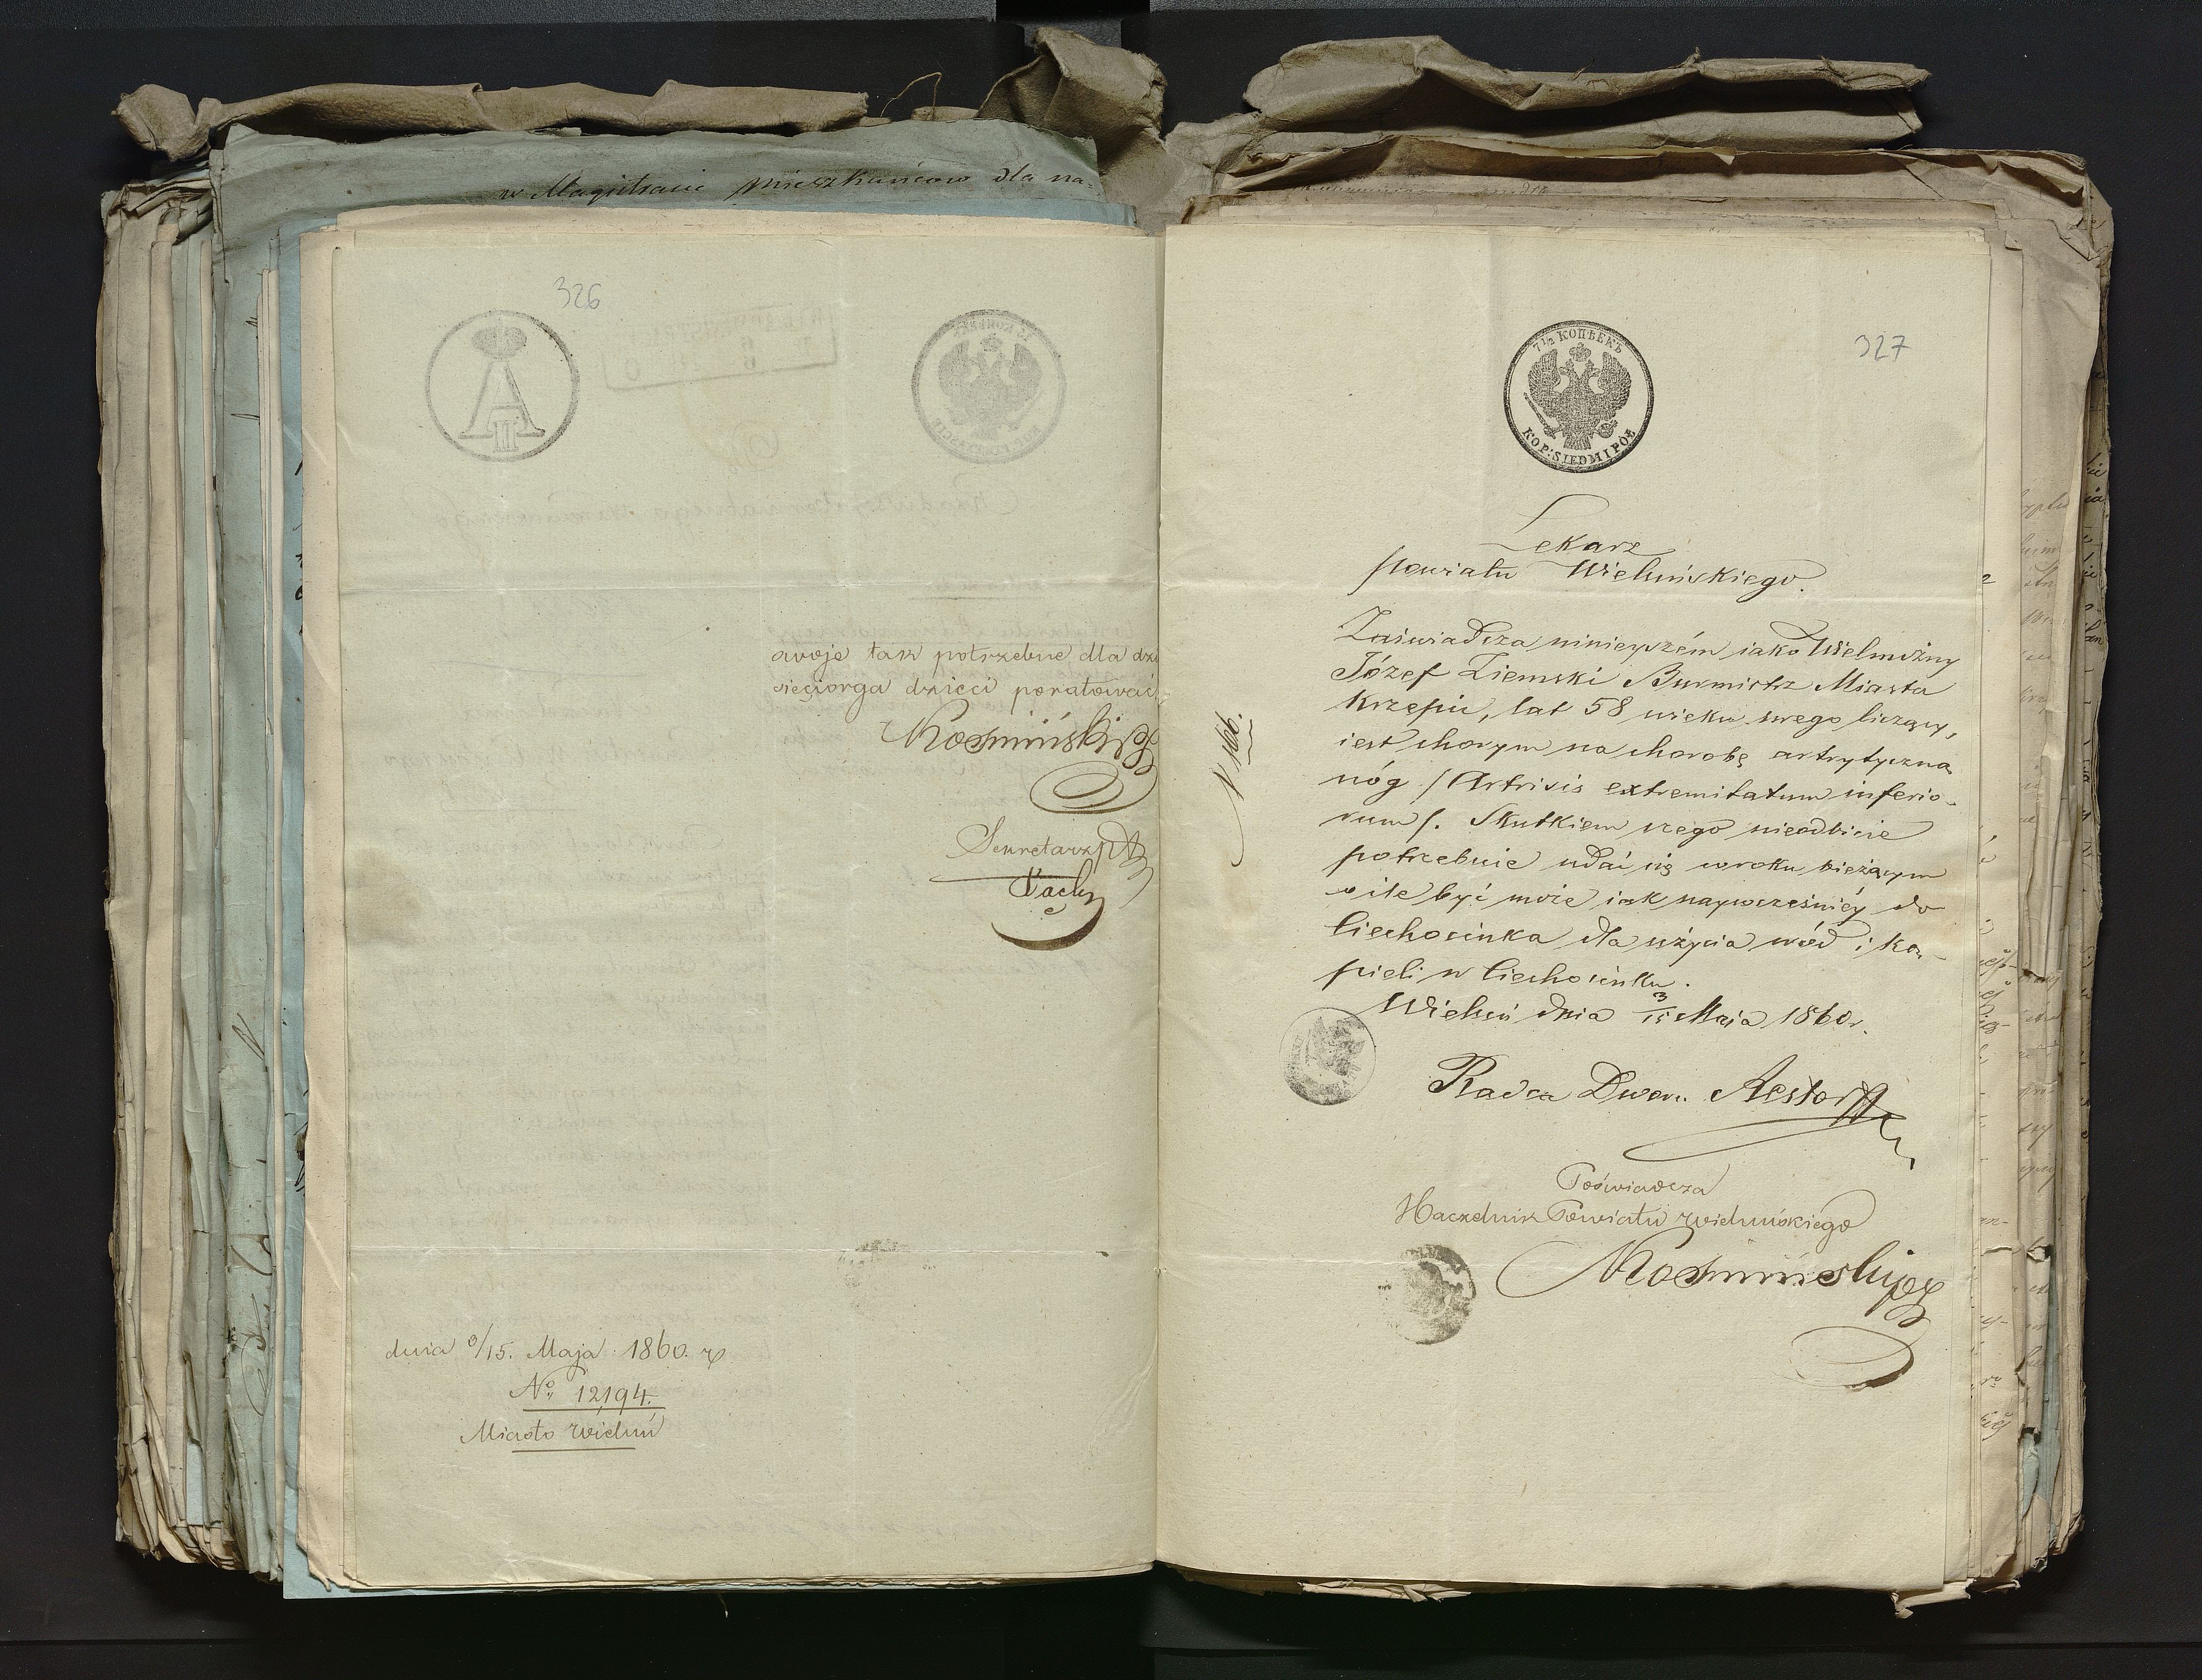 w Magistracie mieszkańcow dla na-
326
A II
swoje tak potrzebne dla dzie
sięciorga dzieci poratować
Kosmiński
Sekretarz
dnia 3/15. Maja 1860. r
No. 12,194.
Miasto Wieluń
327
7½ КОПѢЕКЪ
KOP: SIEDM I PÓŁ
Lekarz
Powiatu Wieluńskiego.
N 166.
Zaświadcza ninieyszém iako Wielmożny
Józef Ziemski Burmistrz Miasta
Krzepic, lat 58 wieku swego liczący,
iest chorym na chorobę artrytyczną
nóg / Artrisis extremitatum inferio-
rum /. Skutkiem czego nieodbicie
potrzebuie udać się w roku bieżącym
o ile być może iak naywcześniéy do
Ciechocinka dla użycia wód i ką-
pieli w Ciechocinku.
Wieluń dnia 3/15 Maja 1860 r.
Radca Dworu
Poświadcza
Naczelnik Powiatu Wieluńskiego
Kosmiński